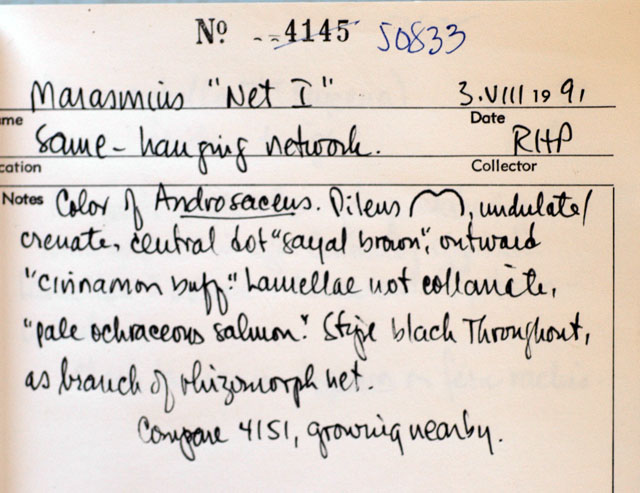 Nº 4145 50833
Marasmius "Net I" 3.VIII 19 91
me Date
Same - hanging network. RHP
cation Collector
Notes Color of Androsaceus. Pileus , undulate/
crenate, central dot "sayal brown", outward
"cinnamon buff". Lamellae not collariate,
"pale ochraceous salmon". Stipe black throughout,
as branch of rhizomorph net.
Compare 4151, growing nearby.